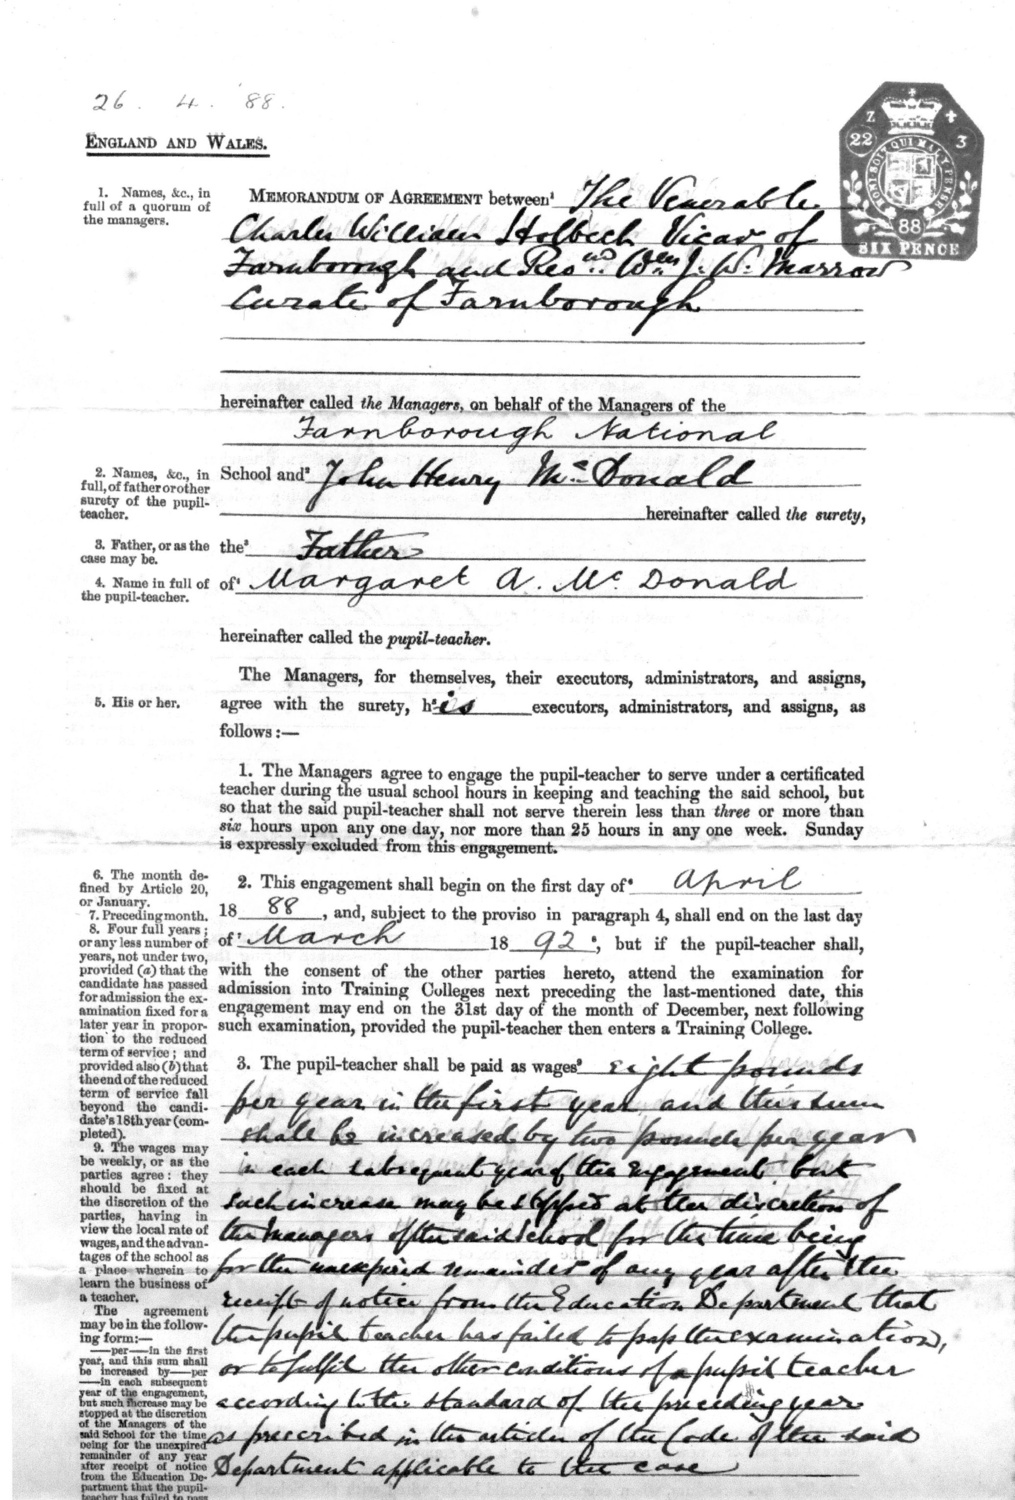 26 . 4 . '88.
ENGLAND AND WALES.
Z
22
3
HONI SOIT QUI MAL Y PENSE
88
SIX PENCE
1. Names, &c., in
full of a quorum of
the managers.
MEMORANDUM OF AGREEMENT between¹ The Venerable
Charles William Holbech Vicar of
Farnborough and Revnd. Wm J. W. Marrow
Curate of Farnborough
hereinafter called the Managers, on behalf of the Managers of the
Farnborough National
2. Names, &c., in
full, of father or other
surety of the pupil-
teacher.
School and² John Henry Mc Donald
hereinafter called the surety,
3. Father, or as the
case may be.
the³ Father
4. Name in full of
the pupil-teacher.
of⁴ Margaret A. Mc Donald
hereinafter called the pupil-teacher.
The Managers, for themselves, their executors, administrators, and assigns,
5. His or her.
agree with the surety, h⁵is executors, administrators, and assigns, as
follows:—
1. The Managers agree to engage the pupil-teacher to serve under a certificated
teacher during the usual school hours in keeping and teaching the said school, but
so that the said pupil-teacher shall not serve therein less than three or more than
six hours upon any one day, nor more than 25 hours in any one week. Sunday
is expressly excluded from this engagement.
6. The month de-
fined by Article 20,
or January.
7. Preceding month.
8. Four full years;
or any less number of
years, not under two,
provided (a) that the
candidate has passed
for admission the ex-
amination fixed for a
later year in propor-
tion to the reduced
term of service; and
provided also (b) that
the end of the reduced
term of service fall
beyond the candi-
date's 18th year (com-
pleted).
9. The wages may
be weekly, or as the
parties agree: they
should be fixed at
the discretion of the
parties, having in
view the local rate of
wages, and the advan-
tages of the school as
a place wherein to
learn the business of
a teacher.
The agreement
may be in the follow-
ing form:—
—per—in the first
year, and this sum shall
be increased by—per
—in each subsequent
year of the engagement,
but such increase may be
stopped at the discretion
of the Managers of the
said School for the time
being for the unexpired
remainder of any year
after receipt of notice
from the Education De-
partment that the pupil-
teacher has failed to pass
2. This engagement shall begin on the first day of⁶ April
18 88, and, subject to the proviso in paragraph 4, shall end on the last day
of⁷ March 18 92 ⁸, but if the pupil-teacher shall,
with the consent of the other parties hereto, attend the examination for
admission into Training Colleges next preceding the last-mentioned date, this
engagement may end on the 31st day of the month of December, next following
such examination, provided the pupil-teacher then enters a Training College.
3. The pupil-teacher shall be paid as wages⁹ eight pounds
per year in the first year and this sum
shall be increased by two pounds per year
in each subsequent year of the engagement but
such increase may be stopped at the discretion of
the Managers of the said School for the time being
for the unexpired remainder of any year after the
receipt of notice from the Education Department that
the pupil teacher has failed to pass the examination,
or to fulfil the other conditions of a pupil teacher
according to the standard of the preceding year
as prescribed in the articles of the Code of the said
Department applicable to the case